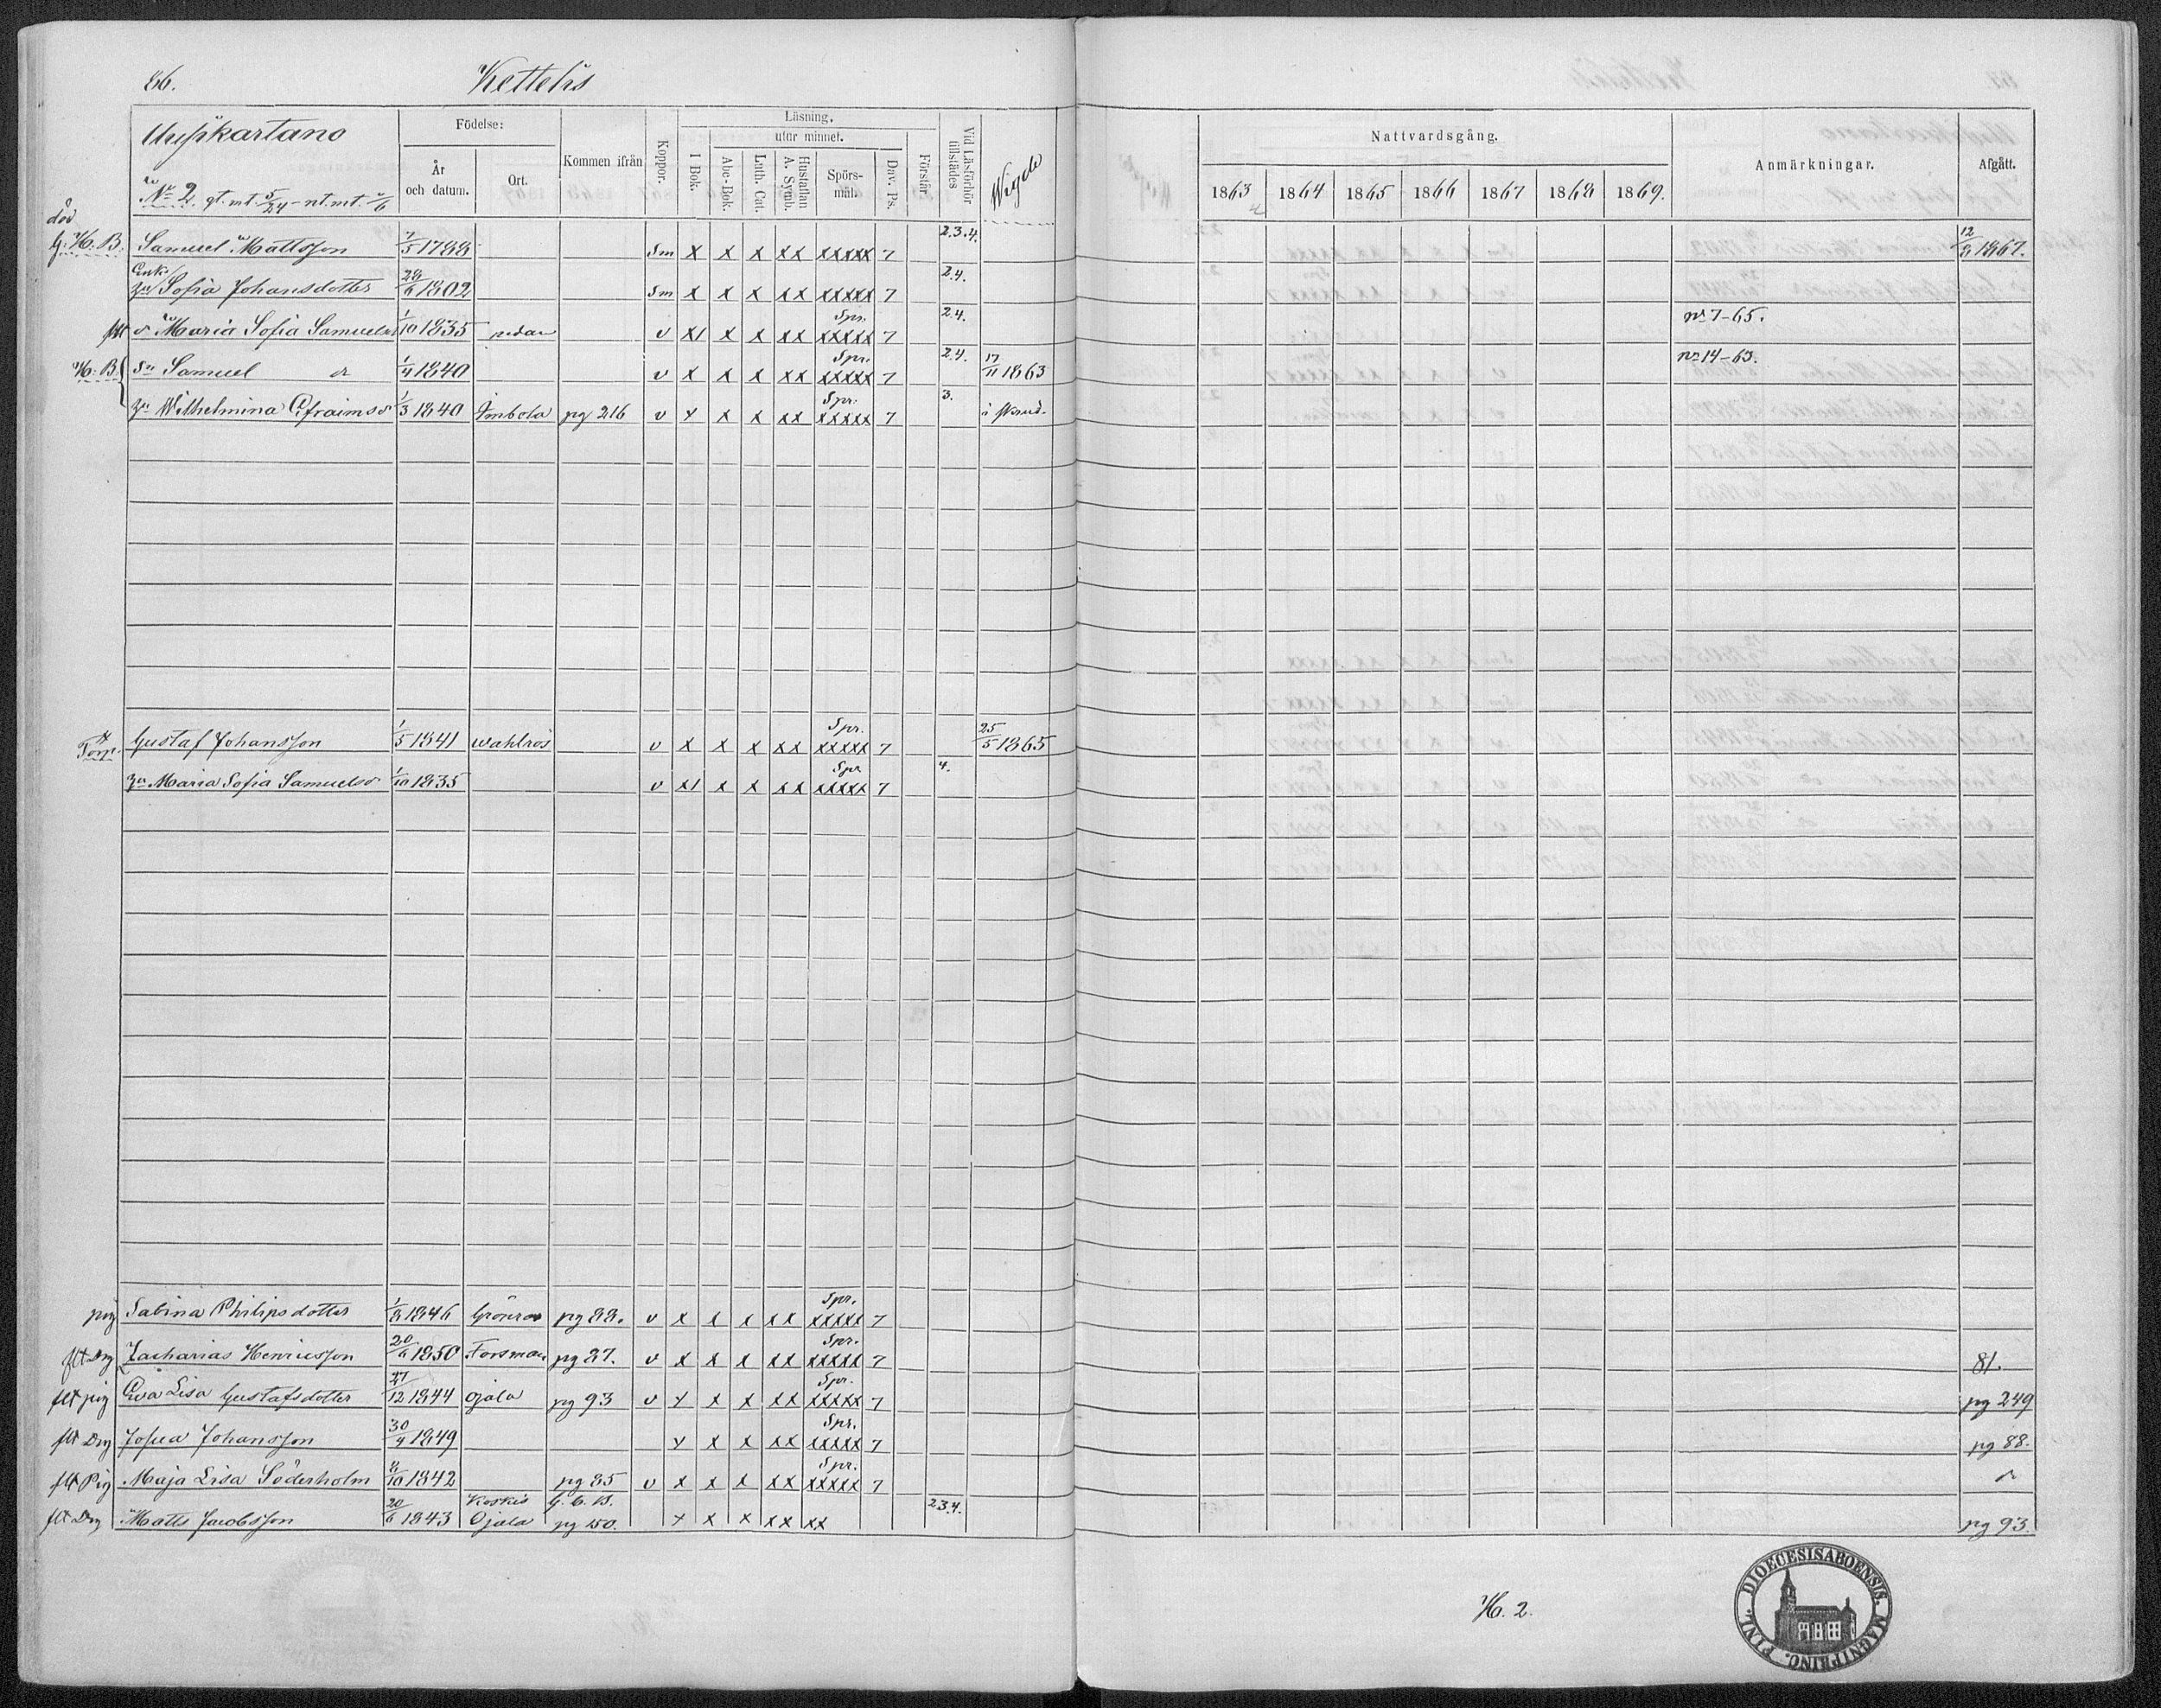 86. Kettelis
Födelse: Läsning. utur minnet.
Nattvardsgång.
År och datum. Ort. Kommen ifrån Koppor. I Bok. Abc-Bok. Luth. Cat. Hustaflan A. Symb. Spörs-mål. Dav. Ps. Förstår Vid Läsförhör tillstädes Wigde
1863 1864 1865 1866 1867 1868 1869. Anmärkningar. Afgått.
No 2. gt. mt. 5/24 - nt. mt.
död
G. H. B. Samuel Mattsson 7/5 1788 Sm x x x xx xxxxx 7 2.3.4. 12/8 1867.
Enk.
Sofia Johansdotter 28/6 1802 Sm x x x xx xxxxx 7 2.4.
flt d Maria Sofia Samuelsd 1/10 1835 nedan v x1 x x xx Spr. xxxxx 7 2.4. no 7-65.
H. B. Sn Samuel 1840 v x x x xx Spr. xxxxx 7 2.4. 17/11 1863 no 14-63.
Wilhelmina Efraimsd 1/3 1840 Imbola pg 216 v x x x xx Spr. xxxxx 7 3.
Torp. Gustaf Johansson 1/5 1841 wahlros v x x x xx Spr. xxxxx 7 25/5 1865
Maria Sofia Samuelsd 1/10 1835 v x1 x x xx Spr xxxxx 7 4.
pig Sabina Philipsdotter 1/8 1846 Grönroos pg 88. v x x x xx Spr. xxxxx 7
flt Drg Zacharias Henricsson 20/6 1850 Forsman pg 87. v x x x xx Spr. xxxxx 7 81.
flt pig Eva Lisa Gustafsdotter 27/12 1844 Ojala pg 93 v x x x xx Spr. xxxxx 7 pg 249
flt Drg Josua Johansson 30/9 1849 x x x xx Spr. xxxxx 7 pg 88.
flt Pig Maja Lisa Söderholm 8/10 1842 pg 85 v x x x xx Spr. xxxxx 7
flt Drg Matts Jacobsson 20/6 1843 Koskis Ojala G. C. B. pg 150. x x x xx xx 2.3.4. pg 93.
H. 2.
DIOECESIS ABOENSIS. MAGNI PRINC. FINL.